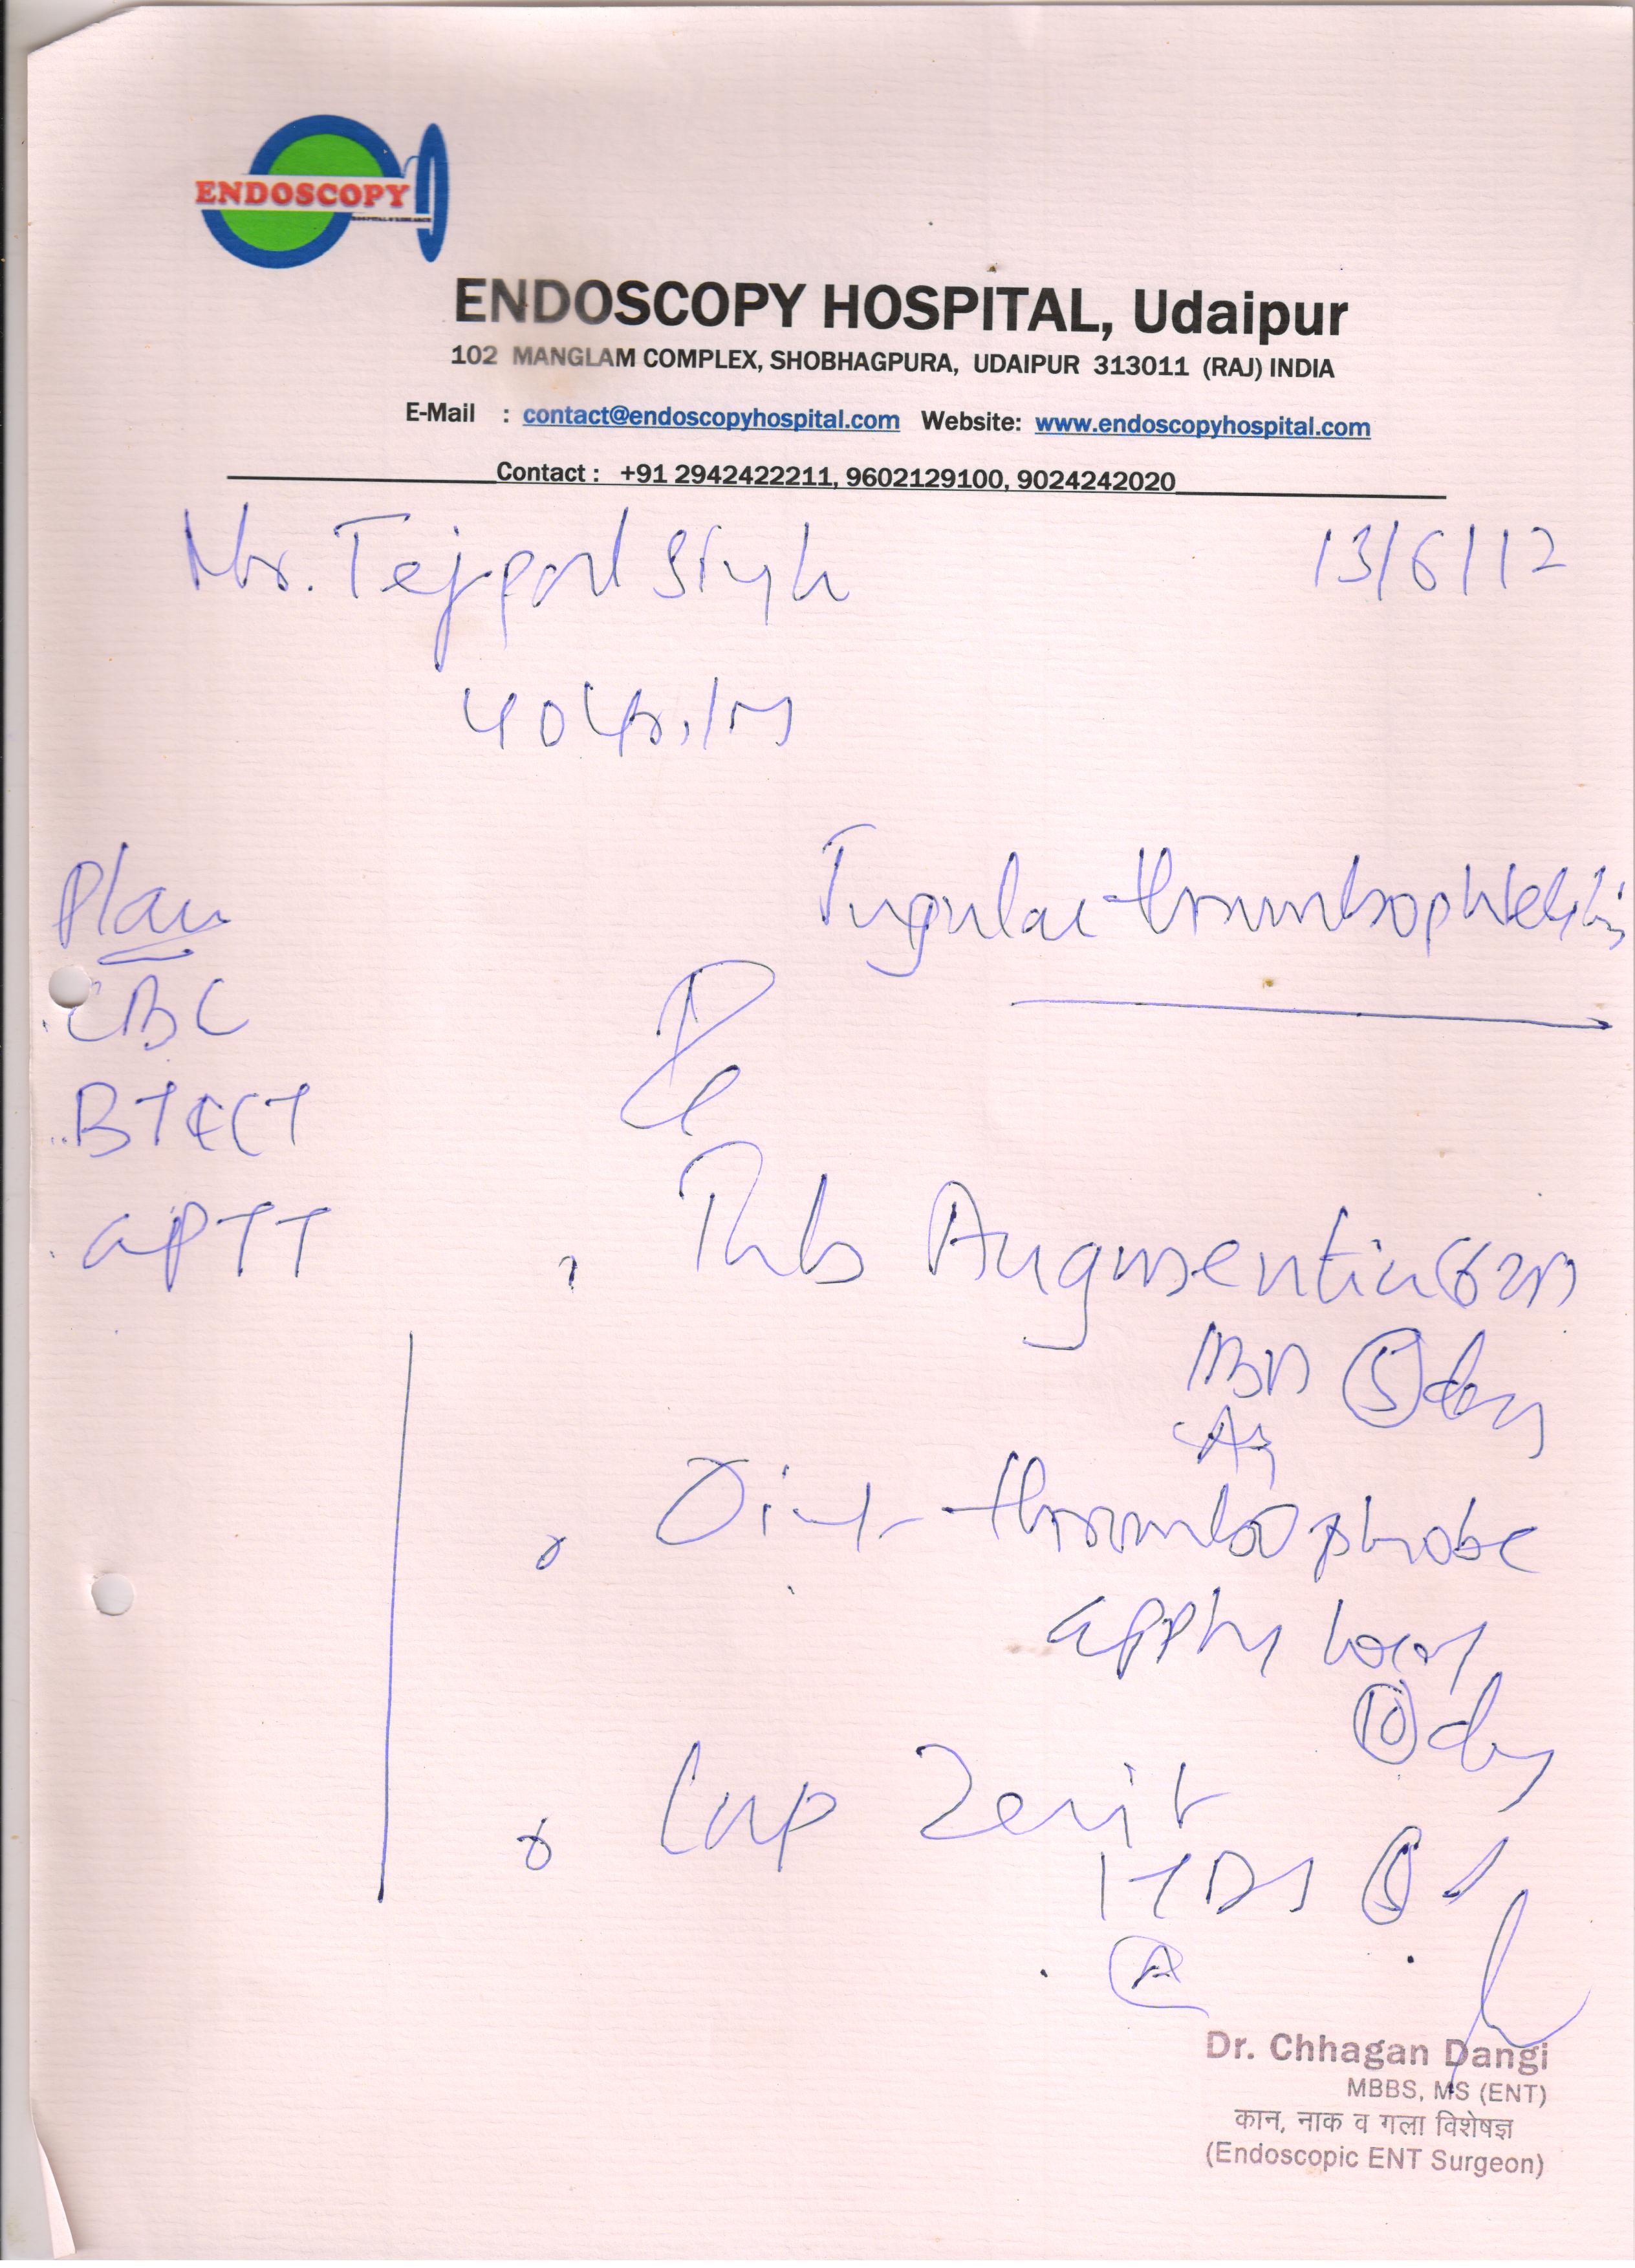 ENDOSCOPY
ENDOSCOPY HOSPITAL, Udaipur
102 MANGLAM COMPLEX, SHOBHAGPURA, UDAIPUR 313011 (RAJ) INDIA
E-Mail : contact@endoscopyhospital.com Website: www.endoscopyhospital.com
Contact : +91 2942422211, 9602129100, 9024242020
Mr. Tejpal Singh 13/6/12
40 Yrs./M
Jugular thrombophlebitis
Plan
CBC
BT & CT
aPTT
Rx
Tab Augmentin (625)
1 BD (5) days
Oint thrombophobe
apply local
(10) days
Cap
Dr. Chhagan Dangi
MBBS, MS (ENT)
कान, नाक व गला विशेषज्ञ
(Endoscopic ENT Surgeon)